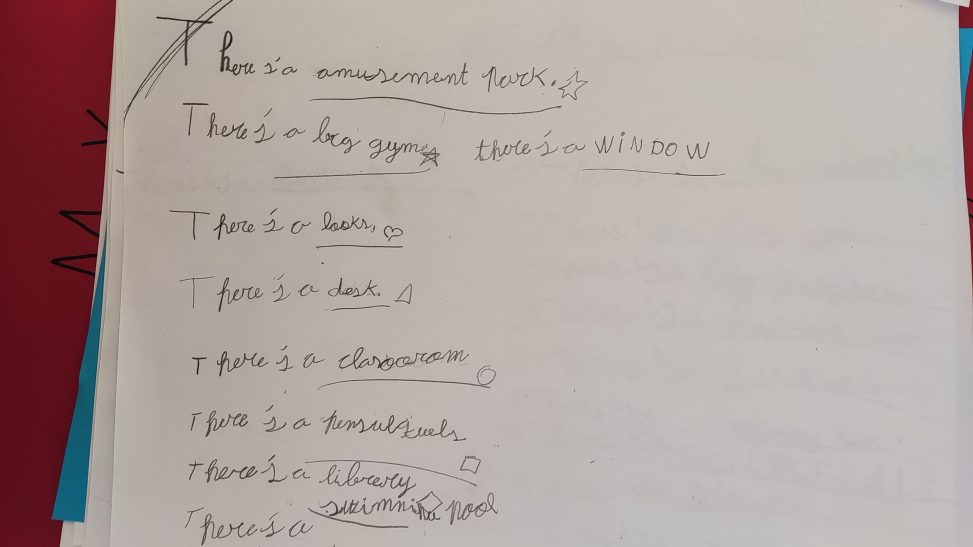 There's a amusement park.
There's a big gym. there's a WiNDOW
There's a looks.
There's a desk.
There's a
There's a
There's a library
There's a swimming pool